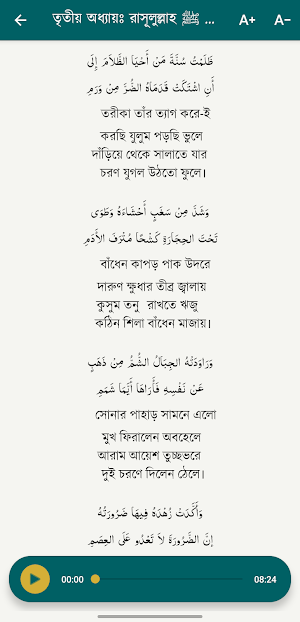 তৃতীয় অধ্যায়ঃ রাসূলুল্লাহ ﷺ ...
A+ A-
ظَلَمْتُ سُنَّةَ مَنْ أَحْيَا الظَّلاَمَ إِلَى
أَنِ اشْتَكَتْ قَدَمَاهُ الضُّرَّ مِنْ وَرَمِ
তরীকা তাঁর ত্যাগ করে-ই
করছি যুলুম পড়ছি ভুলে
দাঁড়িয়ে থেকে সালাতে যার
চরণ যুগল উঠতো ফুলে।
وَشَدَّ مِنْ سَغَبٍ أَحْشَاءَهُ وَطَوَى
تَحْتَ الحِجَارَةِ كَشْحًا مُتْرَفَ الأَدَمِ
বাঁধেন কাপড় পাক উদরে
দারুণ ক্ষুধার তীব্র জ্বালায়
কুসুম তনু রাখতে ঋজু
কঠিন শিলা বাঁধেন মাজায়।
وَرَاوَدَتْهُ الجِبَالُ الشُّمُّ مِنْ ذَهَبٍ
عَنْ نَفْسِهِ فَأَرَاهَا أَيَّمَا شَمَمِ
সোনার পাহাড় সামনে এলো
মুখ ফিরালেন অবহেলে
আরাম আয়েশ তুচ্ছভরে
দুই চরণে দিলেন ঠেলে।
وَأَكَّدَتْ زُهْدَهُ فِيهَا ضَرُورَتُهُ
إِنَّ الضَّرُورَةَ لاَ تَعْدُو عَلَى العِصَمِ
00:00 08:24